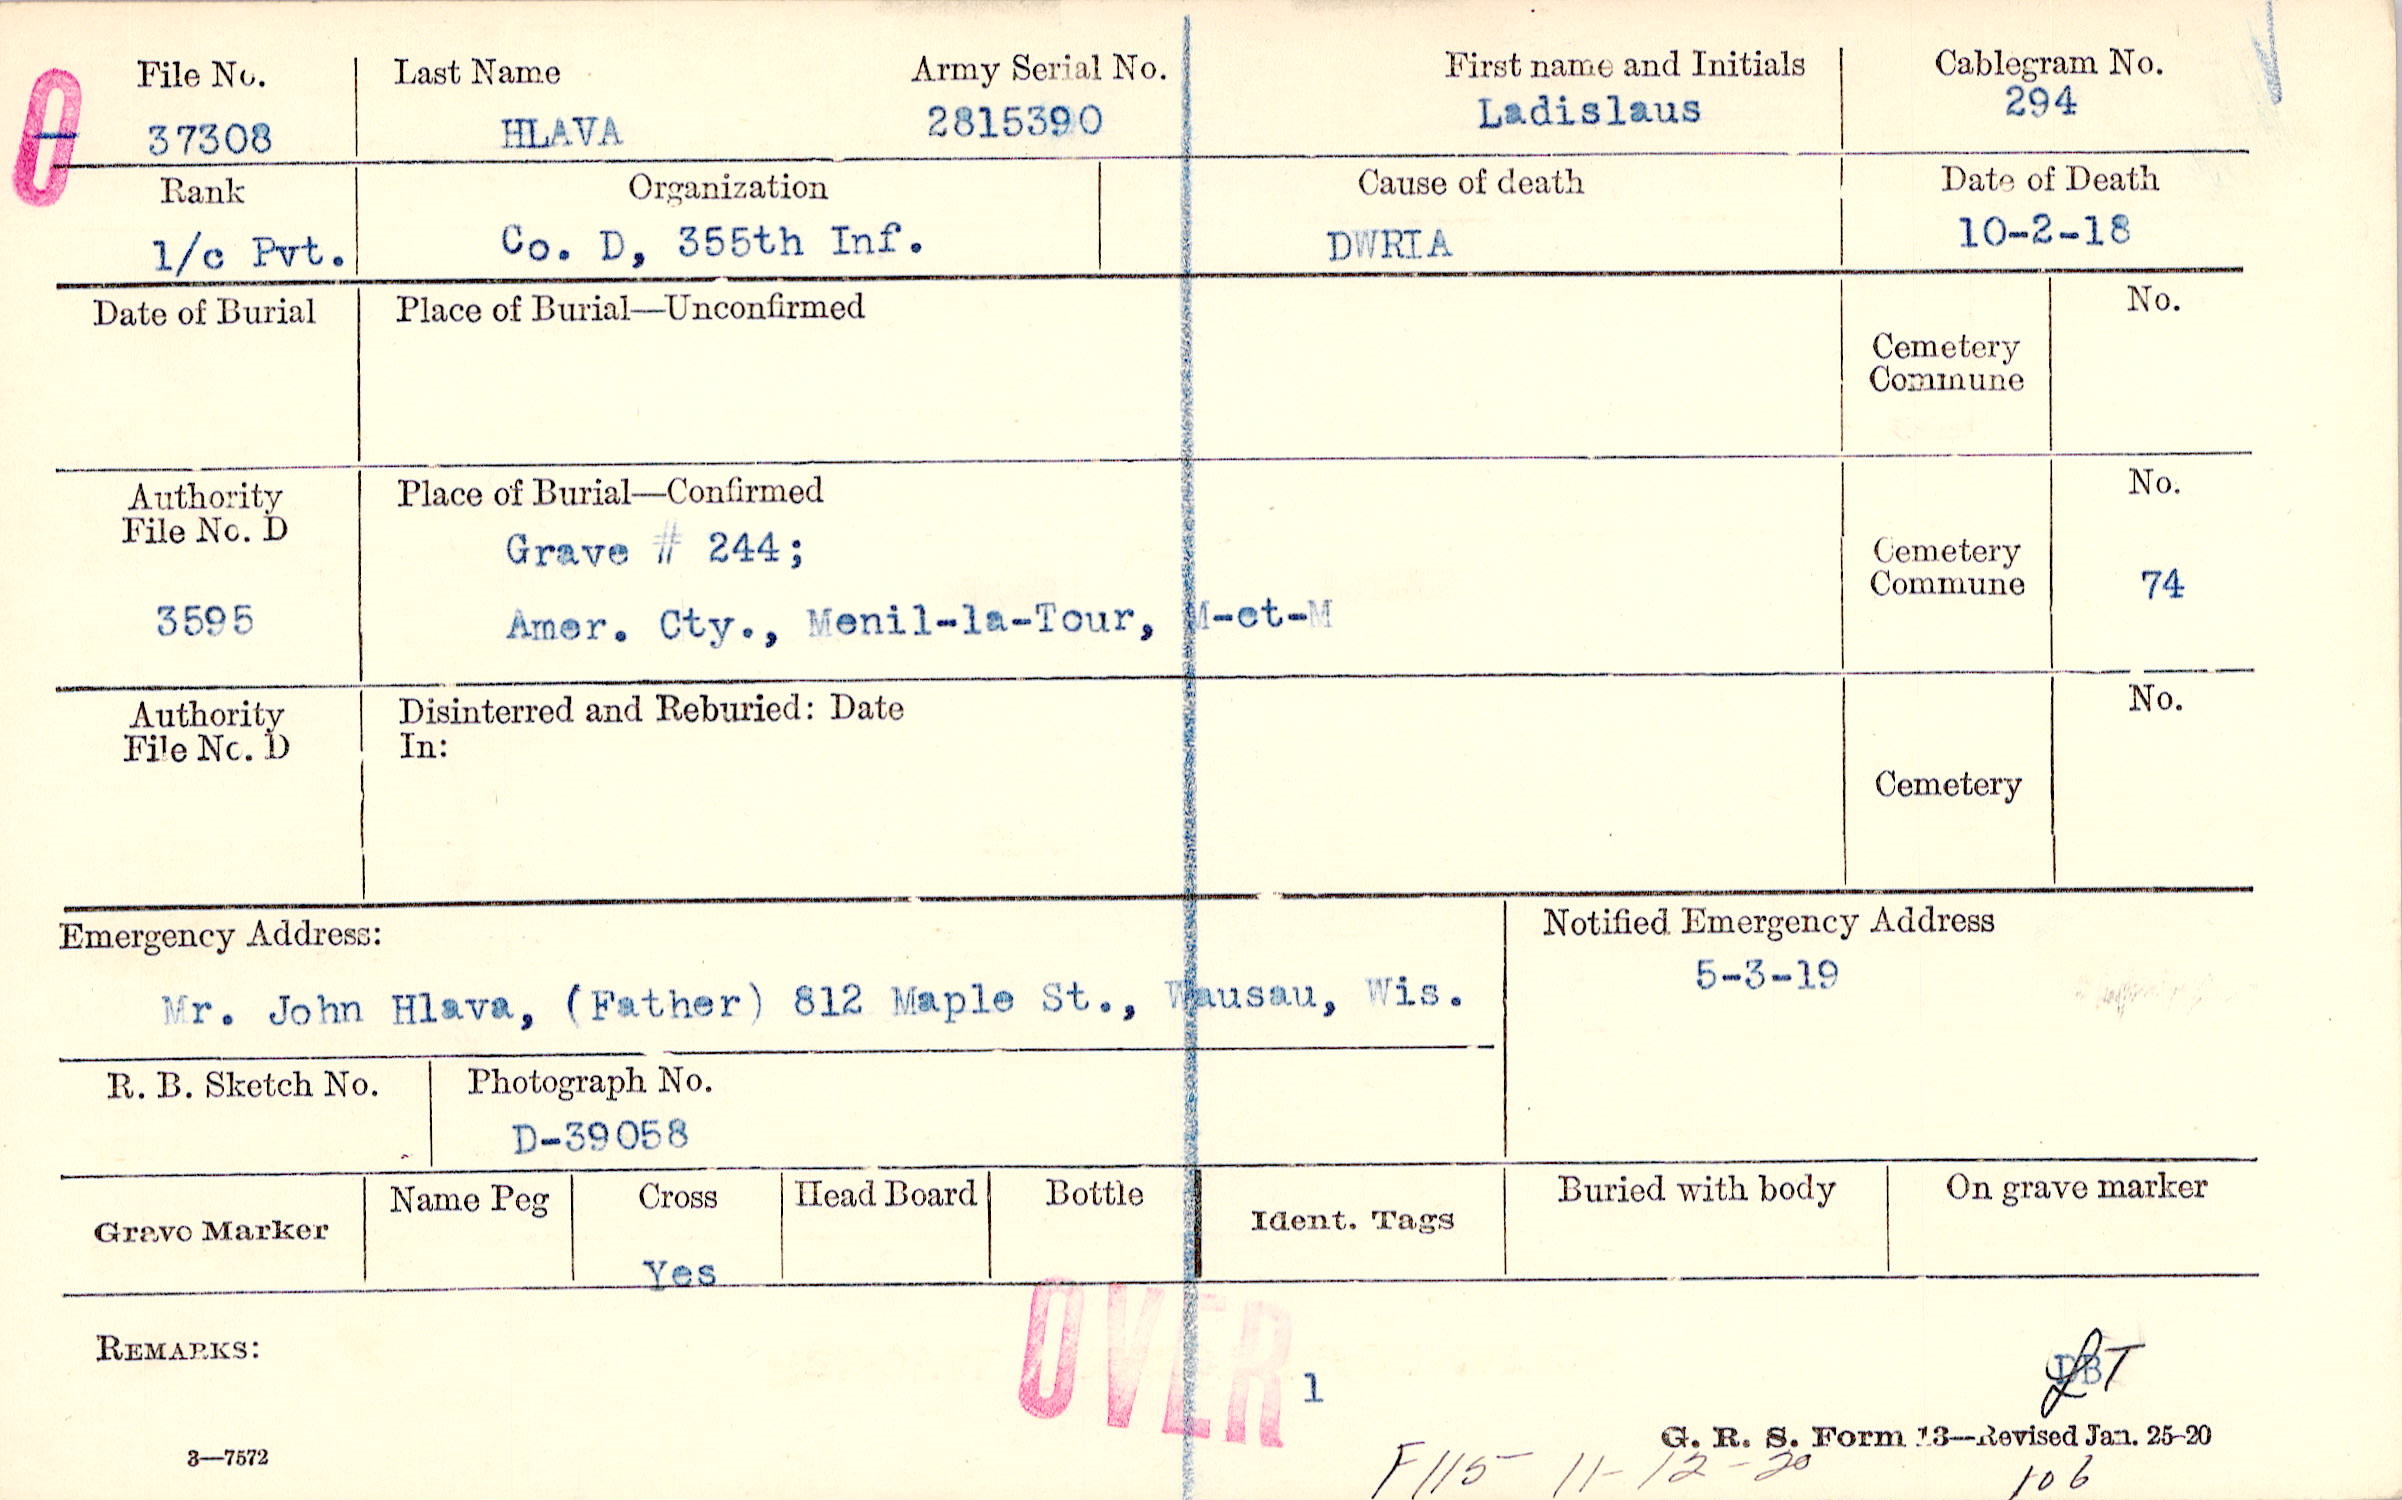 O
File No. Last Name Army Serial No. First name and Initials Cablegram No.
37308 HLAVA 2815390 Ladislaus 294
Rank Organization Cause of death Date of Death
1/c Pvt. Co. D, 355th Inf. DWRIA 10-2-18
Date of Burial Place of Burial—Unconfirmed No.
Cemetery
Commune
Authority Place of Burial—Confirmed No.
File No. D
Grave # 244;
Cemetery
Commune 74
3595 Amer. Cty., Menil-la-Tour, M-et-M
Authority Disinterred and Reburied: Date No.
File No. D In:
Cemetery
Emergency Address: Notified Emergency Address
5-3-19
Mr. John Hlava, (Father) 812 Maple St., Wausau, Wis.
R. B. Sketch No. Photograph No.
D-39058
Grave Marker Name Peg Cross Head Board Bottle Ident. Tags Buried with body On grave marker
Yes
OVER
REMARKS:
1
DB
LT
3—7572
G. R. S. Form 13—Revised Jan. 25-20
F115 11-12-20 106